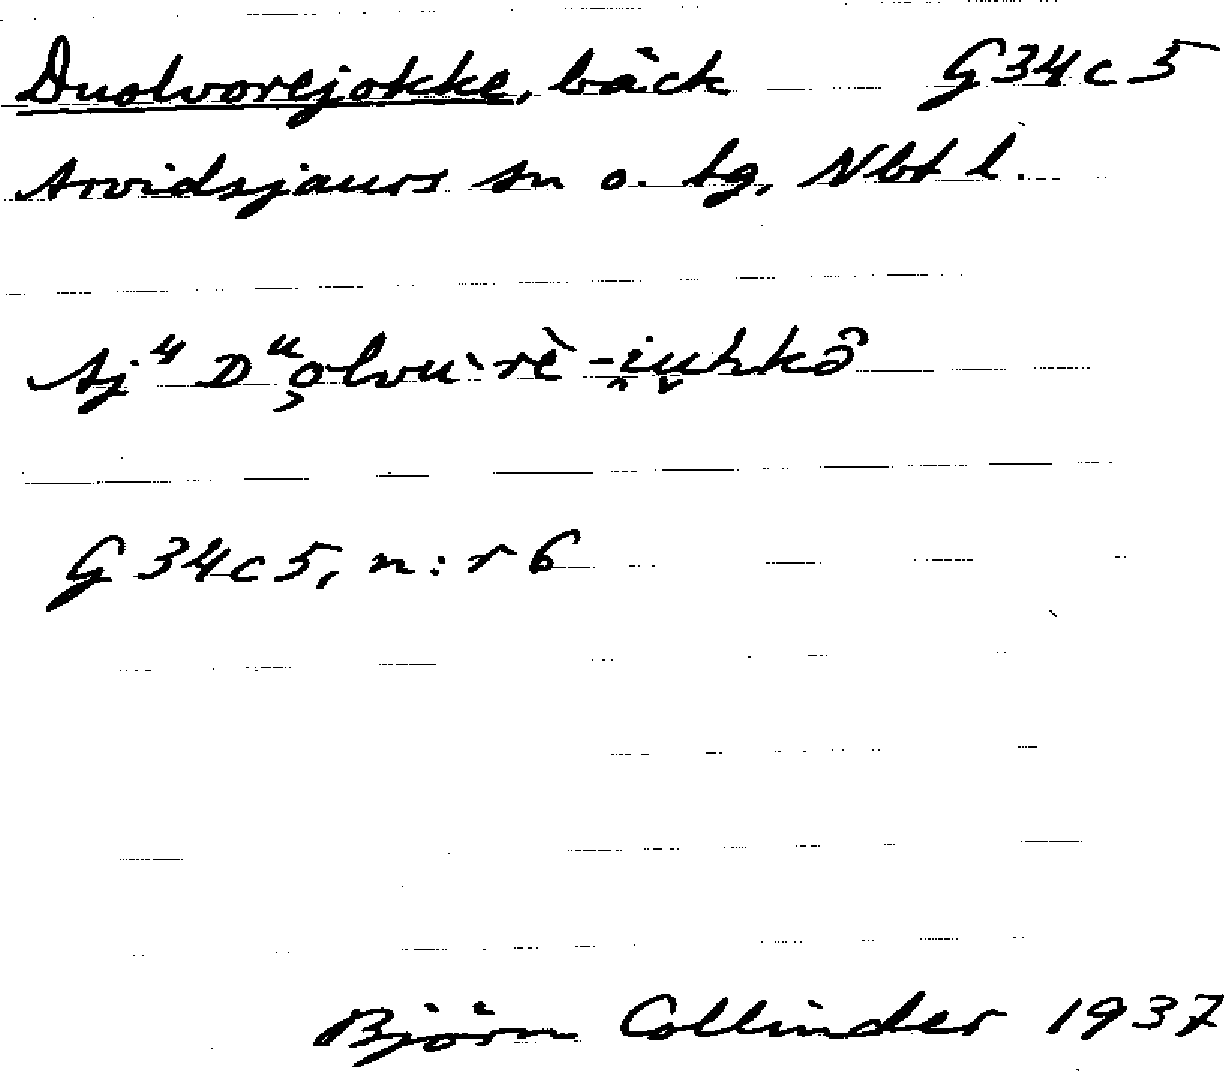 Duolvorejokke, bäck G34c5
Arvidsjaurs sn o. tg, Nbt l.
G34c5, n:r 6
Björn Collinder 1937